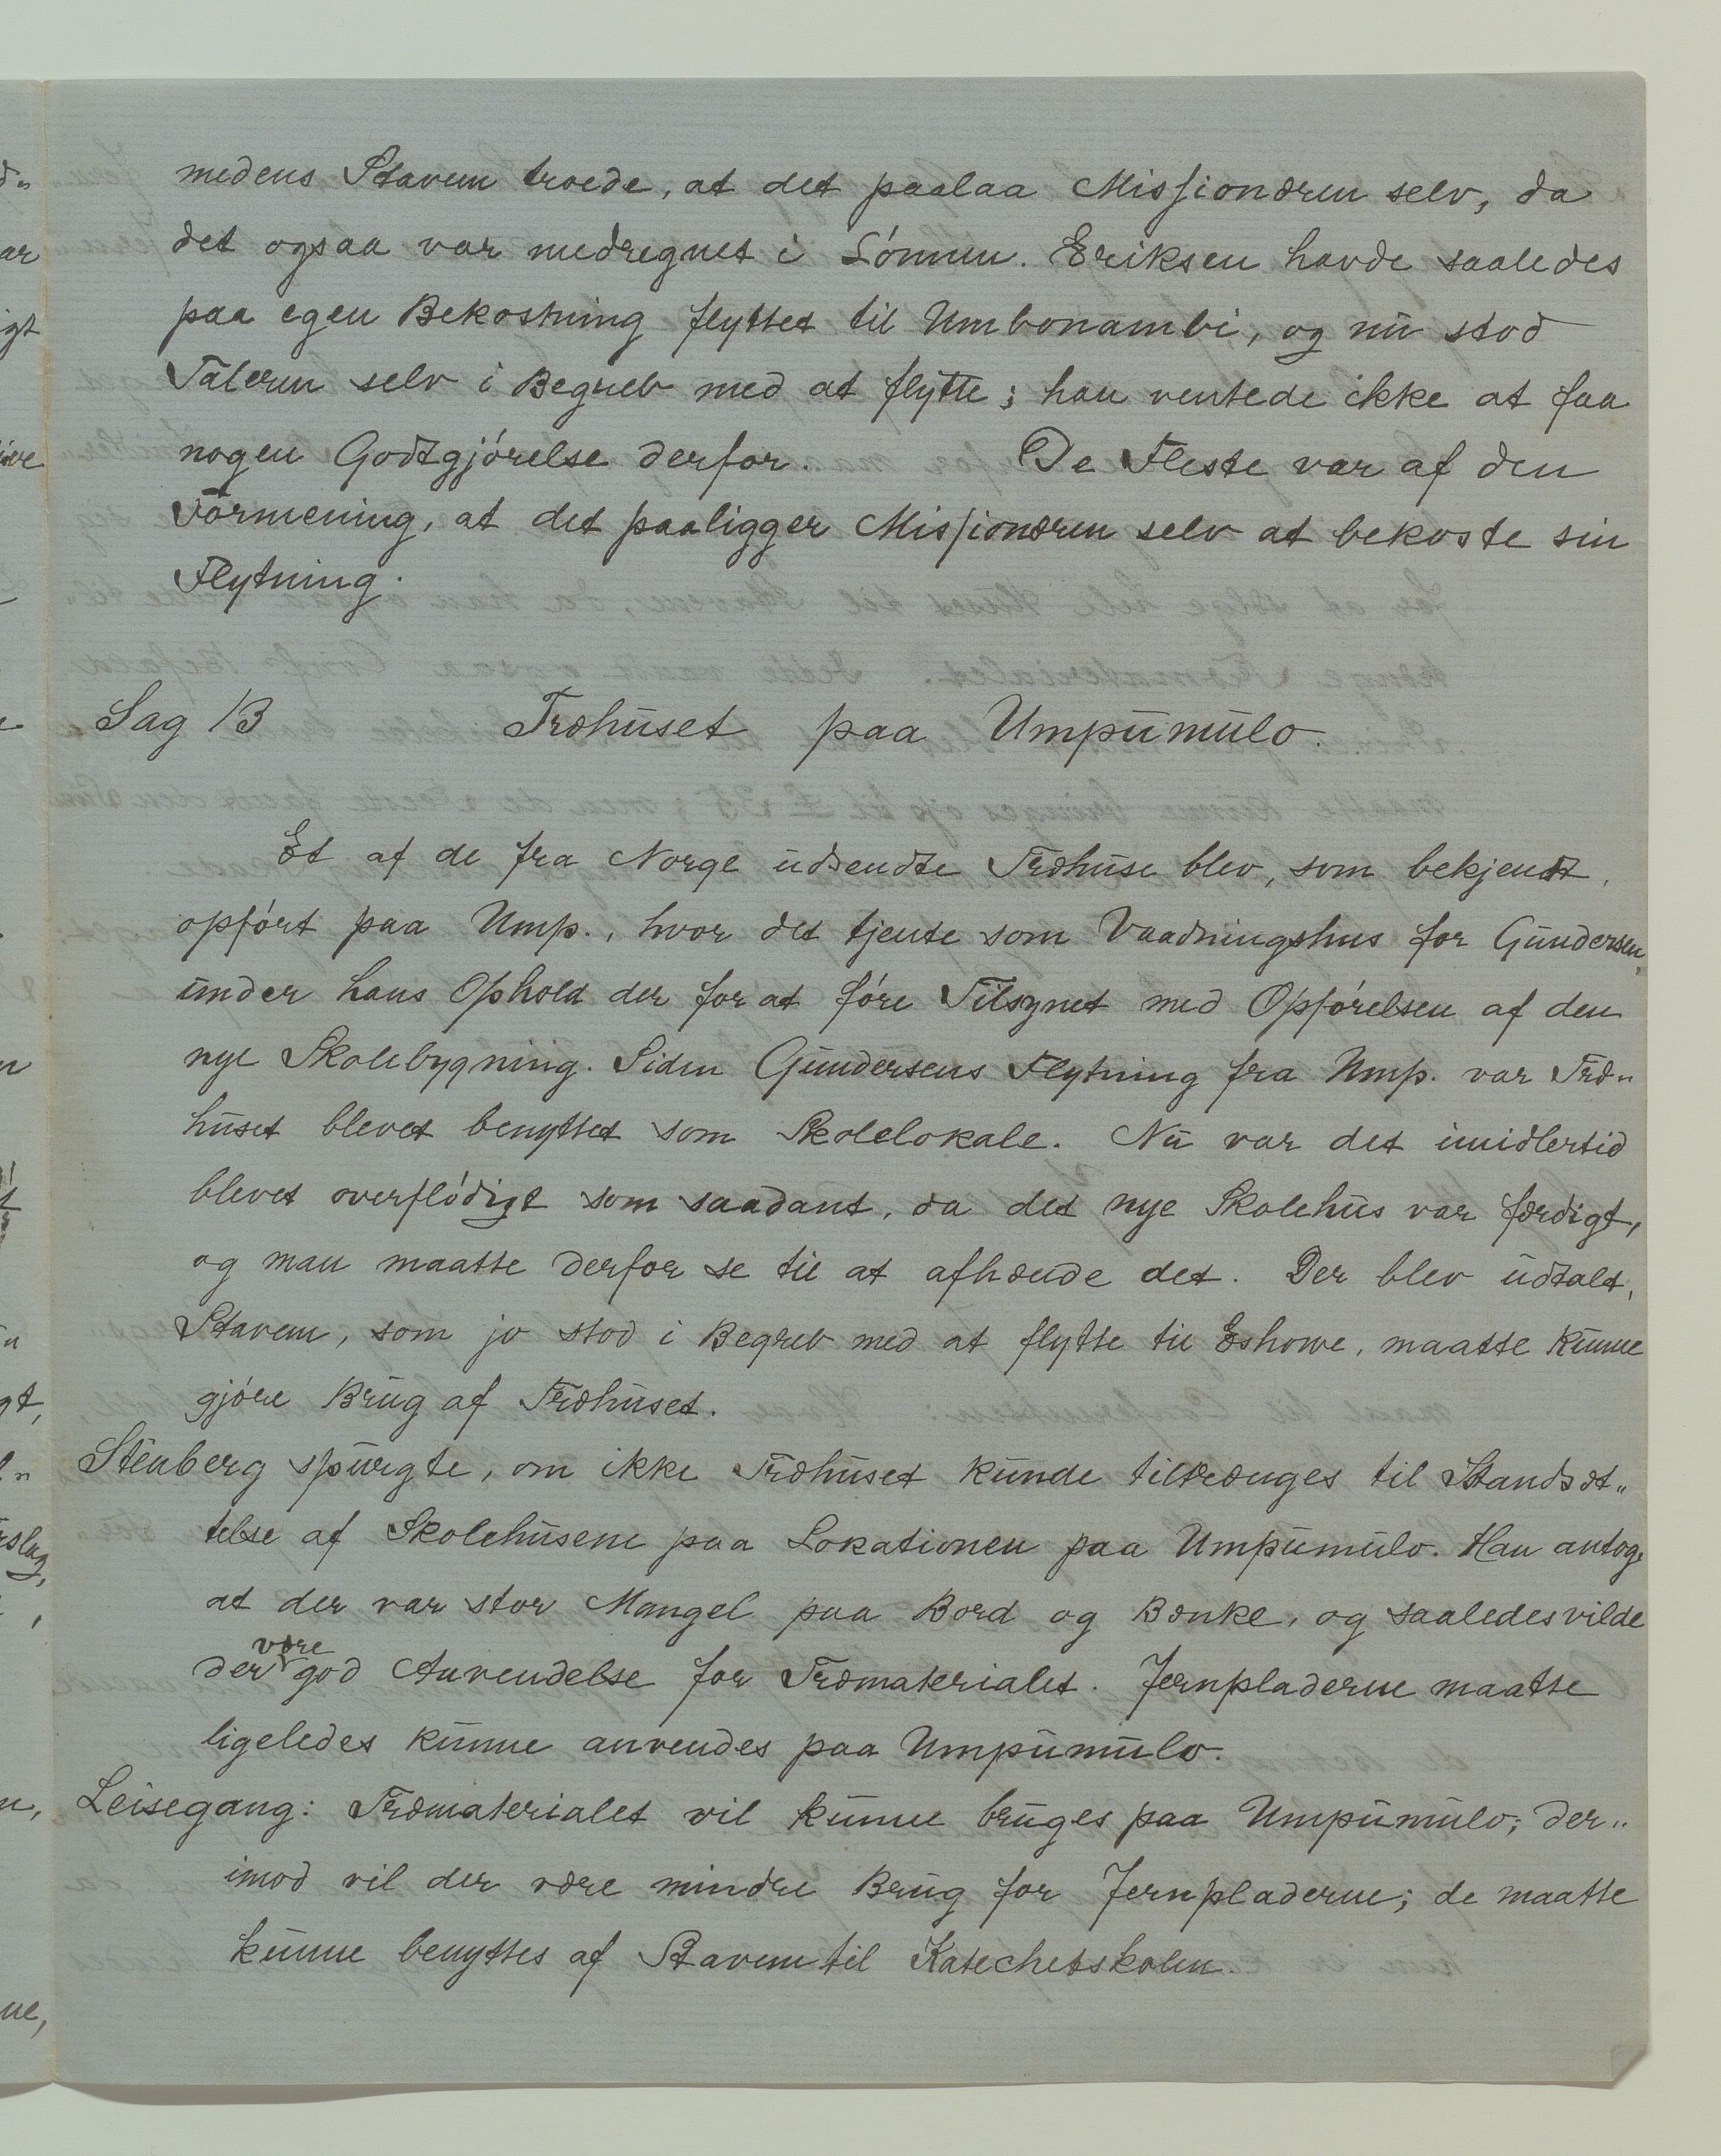 medens Stavem troede, at det paalaa Missionæren selv, da
det ogsaa var medregnet i Lønnen. Eriksen havde saaledes
paa egen Bekostning flyttet til Umbonambi, og nu stod
Taleren selv i Begreb med at flytte; han ventede ikke at faa
nogen Godtgjørelse derfor. De Fleste var af den
Formening, at det paaligger Missionæren selv at bekoste sin
Flytning.
Sag 13 Træhuset paa Umpumulo.
Et af de fra Norge udsendte Træhuse blev, som bekjendt,
opført paa Ump., hvor det tjente som Vaadningshus for Gundersen,
under hans Ophold der for at føre Tilsynet med Opførelsen af den
nye Skolebygning. Siden Gundersens Flytning fra Ump. var Træ„
huset blevet benyttet som Skolelokale. Nu var det imidlertid
blevet overflødigt som saadant, da det nye Skolehus var færdigt,
og man maatte derfor se til at afhænde det. Der blev udtalt,
Stavem, som jo stod i Begreb med at flytte til Eshowe, maatte kunne
gjøre Brug af Træhuset.
Stenberg spurgte, om ikke Træhuset kunde tiltrænges til Standsæt„
telse af Skolehusene paa Lokationen paa Umpumulo. Han antog,
at der var stor Mangel paa Bord og Bænke, og saaledes vilde
der være god Anvendelse for Træmaterialet. Jernpladerne maatte
ligeledes kunne anvendes paa Umpumulo.
Leisegang: Træmaterialet vil kunne bruges paa Umpumulo; der„
imod vil der være mindre Brug for Jernpladerne; de maatte
kunne benyttes af Stavem til Katechetskolen.